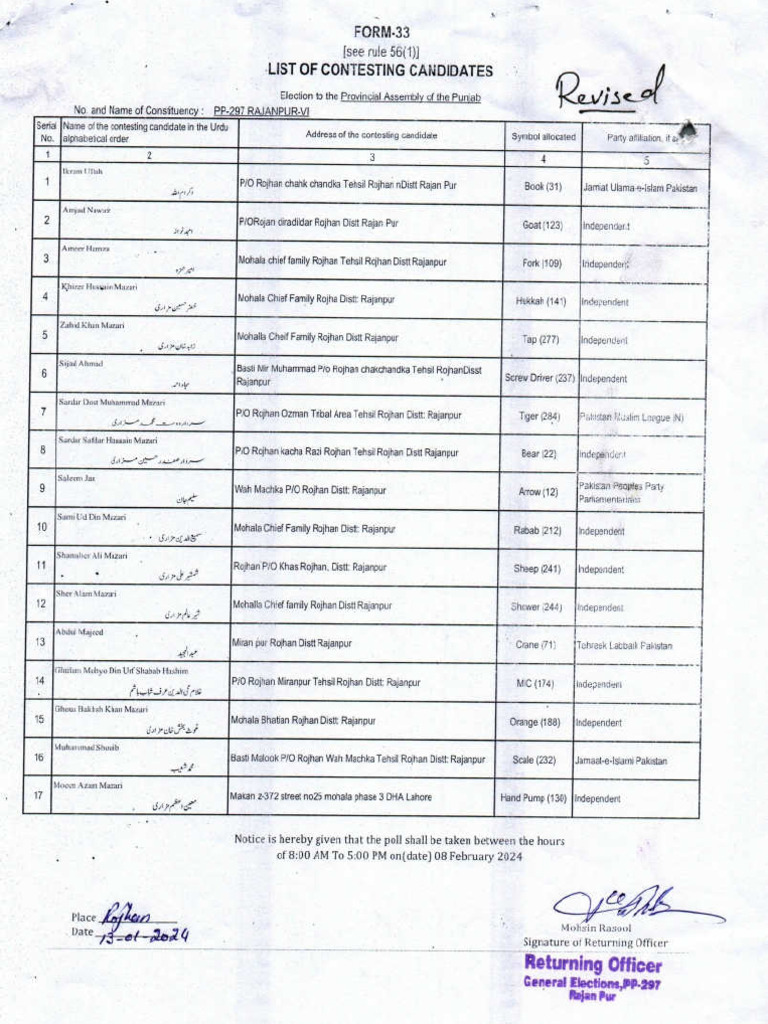 FORM-33
[see rule 56(1)]
LIST OF CONTESTING CANDIDATES
Election to the Provincial Assembly of the Punjab
Revised
No. and Name of Constituency : PP-297 RAJANPUR-VI
Serial No. Name of the contesting candidate in the Urdu alphabetical order Address of the contesting candidate Symbol allocated Party affiliation, if
1 2 3 4 5
1 Ikram Ullah P/O Rojhan chahk chandka Tehsil Rojhan nDistt Rajan Pur Book (31) Jamiat Ulama-e-Islam Pakistan
2 Amjad Nawaz امجد نواز P/ORojan diradildar Rojhan Distt Rajan Pur Goat (123) Independent
3 Ameer Hamza امیر حمزہ Mohala chief family Rojhan Tehsil Rojhan Distt Rajanpur Fork (109) Independent
4 Khizer Hussain Mazari خضر حسین مزاری Mohala Chief Family Rojha Distt: Rajanpur Hukkah (141) Independent
5 Zahid Khan Mazari زاہد خان مزاری Mohalla Cheif Family Rojhan Distt Rajanpur Tap (277) Independent
6 Sijad Ahmad سجاد احمد Basti Mir Muhammad P/o Rojhan chakchandka Tehsil RojhanDisst Rajanpur Screw Driver (237) Independent
7 Sardar Dost Muhammad Mazari سردار دوست محمد مزاری P/O Rojhan Ozman Tribal Area Tehsil Rojhan Distt: Rajanpur Tiger (284) Pakistan Muslim League (N)
8 Sardar Safdar Hussain Mazari سردار صفدر حسین مزاری P/O Rojhan kacha Razi Rojhan Tehsil Rojhan Distt Rajanpur Bear (22) Independent
9 Saleem Jan سلیم جان Wah Machka P/O Rojhan Distt: Rajanpur Arrow (12) Pakistan Peoples Party Parliamentarians
10 Sami Ud Din Mazari سمیع الدین مزاری Mohala Chief Family Rojhan Distt: Rajanpur Rabab (212) Independent
11 Shamsher Ali Mazari شمشیر علی مزاری Rojhan P/O Khas Rojhan, Distt: Rajanpur Sheep (241) Independent
12 Sher Alam Mazari شیر عالم مزاری Mohalla Chief family Rojhan Distt: Rajanpur Shower (244) Independent
13 Abdul Majeed عبدالمجید Miran pur Rojhan Distt Rajanpur Crane (71) Tehreek Labbaik Pakistan
14 Ghulam Mohyo Din Urf Shahab Hashim غلام محی الدین عرف شہاب ہاشم P/O Rojhan Miranpur Tehsil Rojhan Distt: Rajanpur MIC (174) Independent
15 Ghous Bakhsh Khan Mazari غوث بخش خان مزاری Mohala Bhatian Rojhan Distt: Rajanpur Orange (188) Independent
16 Muhammad Shoaib محمد شعیب Basti Malook P/O Rojhan Wah Machka Tehsil Rojhan Distt: Rajanpur Scale (232) Jamaat-e-Islami Pakistan
17 Moeen Azam Mazari معین اعظم مزاری Makan z-372 street no25 mohala phase 3 DHA Lahore Hand Pump (130) Independent
Notice is hereby given that the poll shall be taken between the hours
of 8:00 AM To 5:00 PM on(date) 08 February 2024
Place Rojhan
Date 13-01-2024
Mohsin Rasool
Signature of Returning Officer
Returning Officer
General Elections,PP-297
Rajan Pur